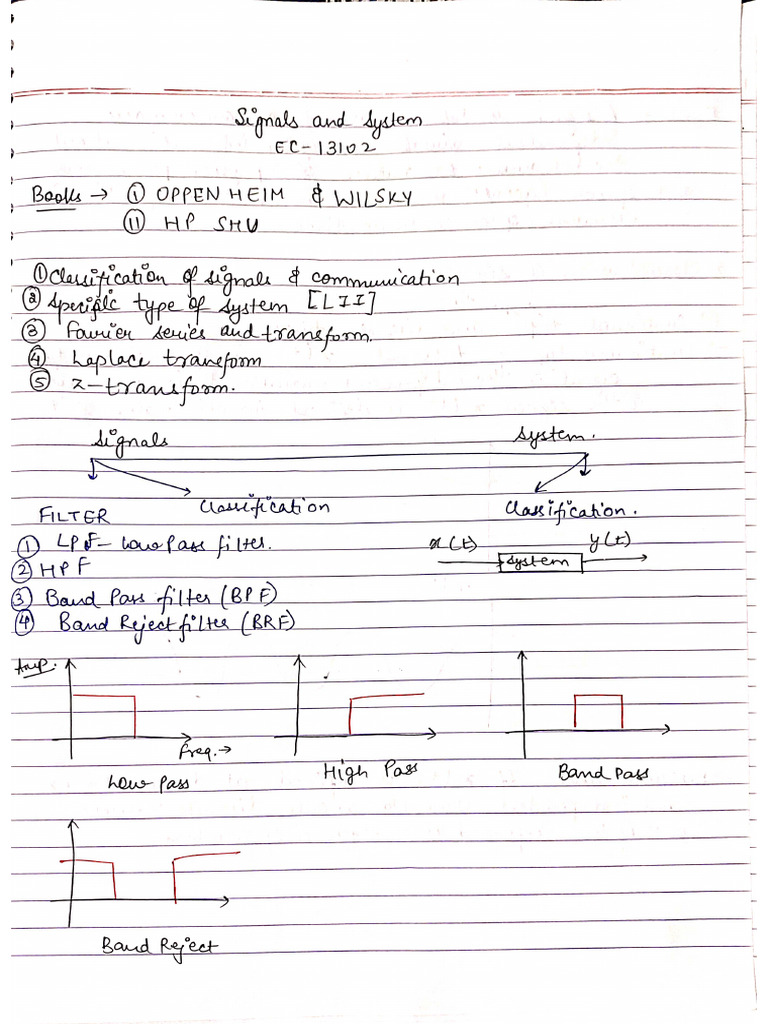 Signals and System
EC-13102
Books → ① OPPENHEIM & WILSKY
⑪ HP SHU
① Classification of signals & communication
② Specific type of system [LII]
③ Fourier series and transform.
④ Laplace transform
⑤ z-transform.
Signals System.
Classification Classification.
FILTER
① LPF - Low Pass filter.
x(t) system y(t)
② HPF
③ Band Pass filter (BPF)
④ Band Reject filter (BRF)
Amp.
Freq. →
Low Pass High Pass Band Pass
Band Reject